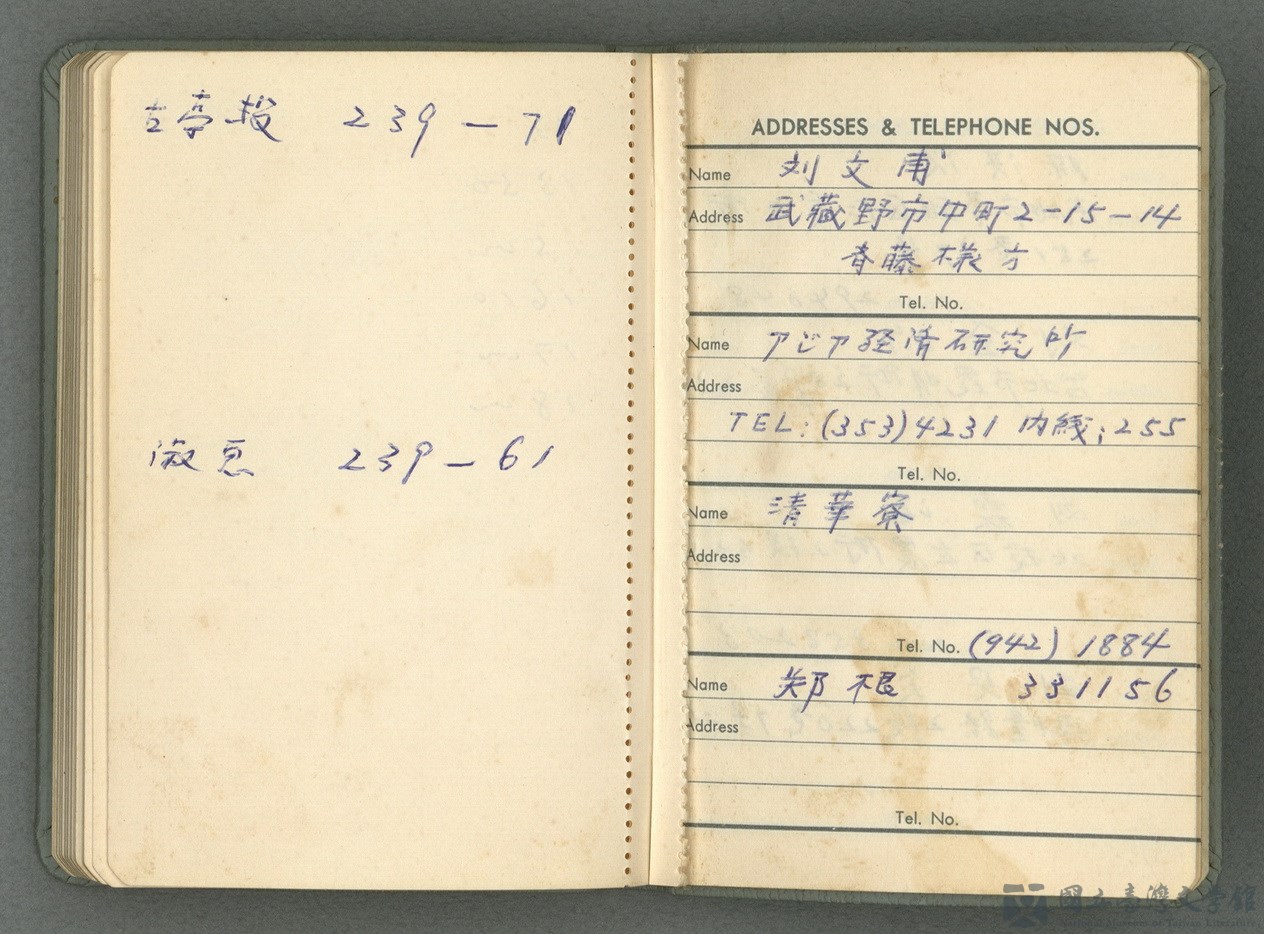 古亭段 239-71
淑惠 239-61
ADDRESSES & TELEPHONE NOS.
Name 刘文甫
Address 武藏野市中町2-15-14
斉藤様方
Tel. No.
Name アジア経済研究所
Address
TEL:(353)4231 内綫;255
Tel. No.
Name 清華寮
Address
Tel. No. (942) 1884
Name 郑根 331156
Address
Tel. No.
國立臺灣文學館
National Museum of Taiwan Literature